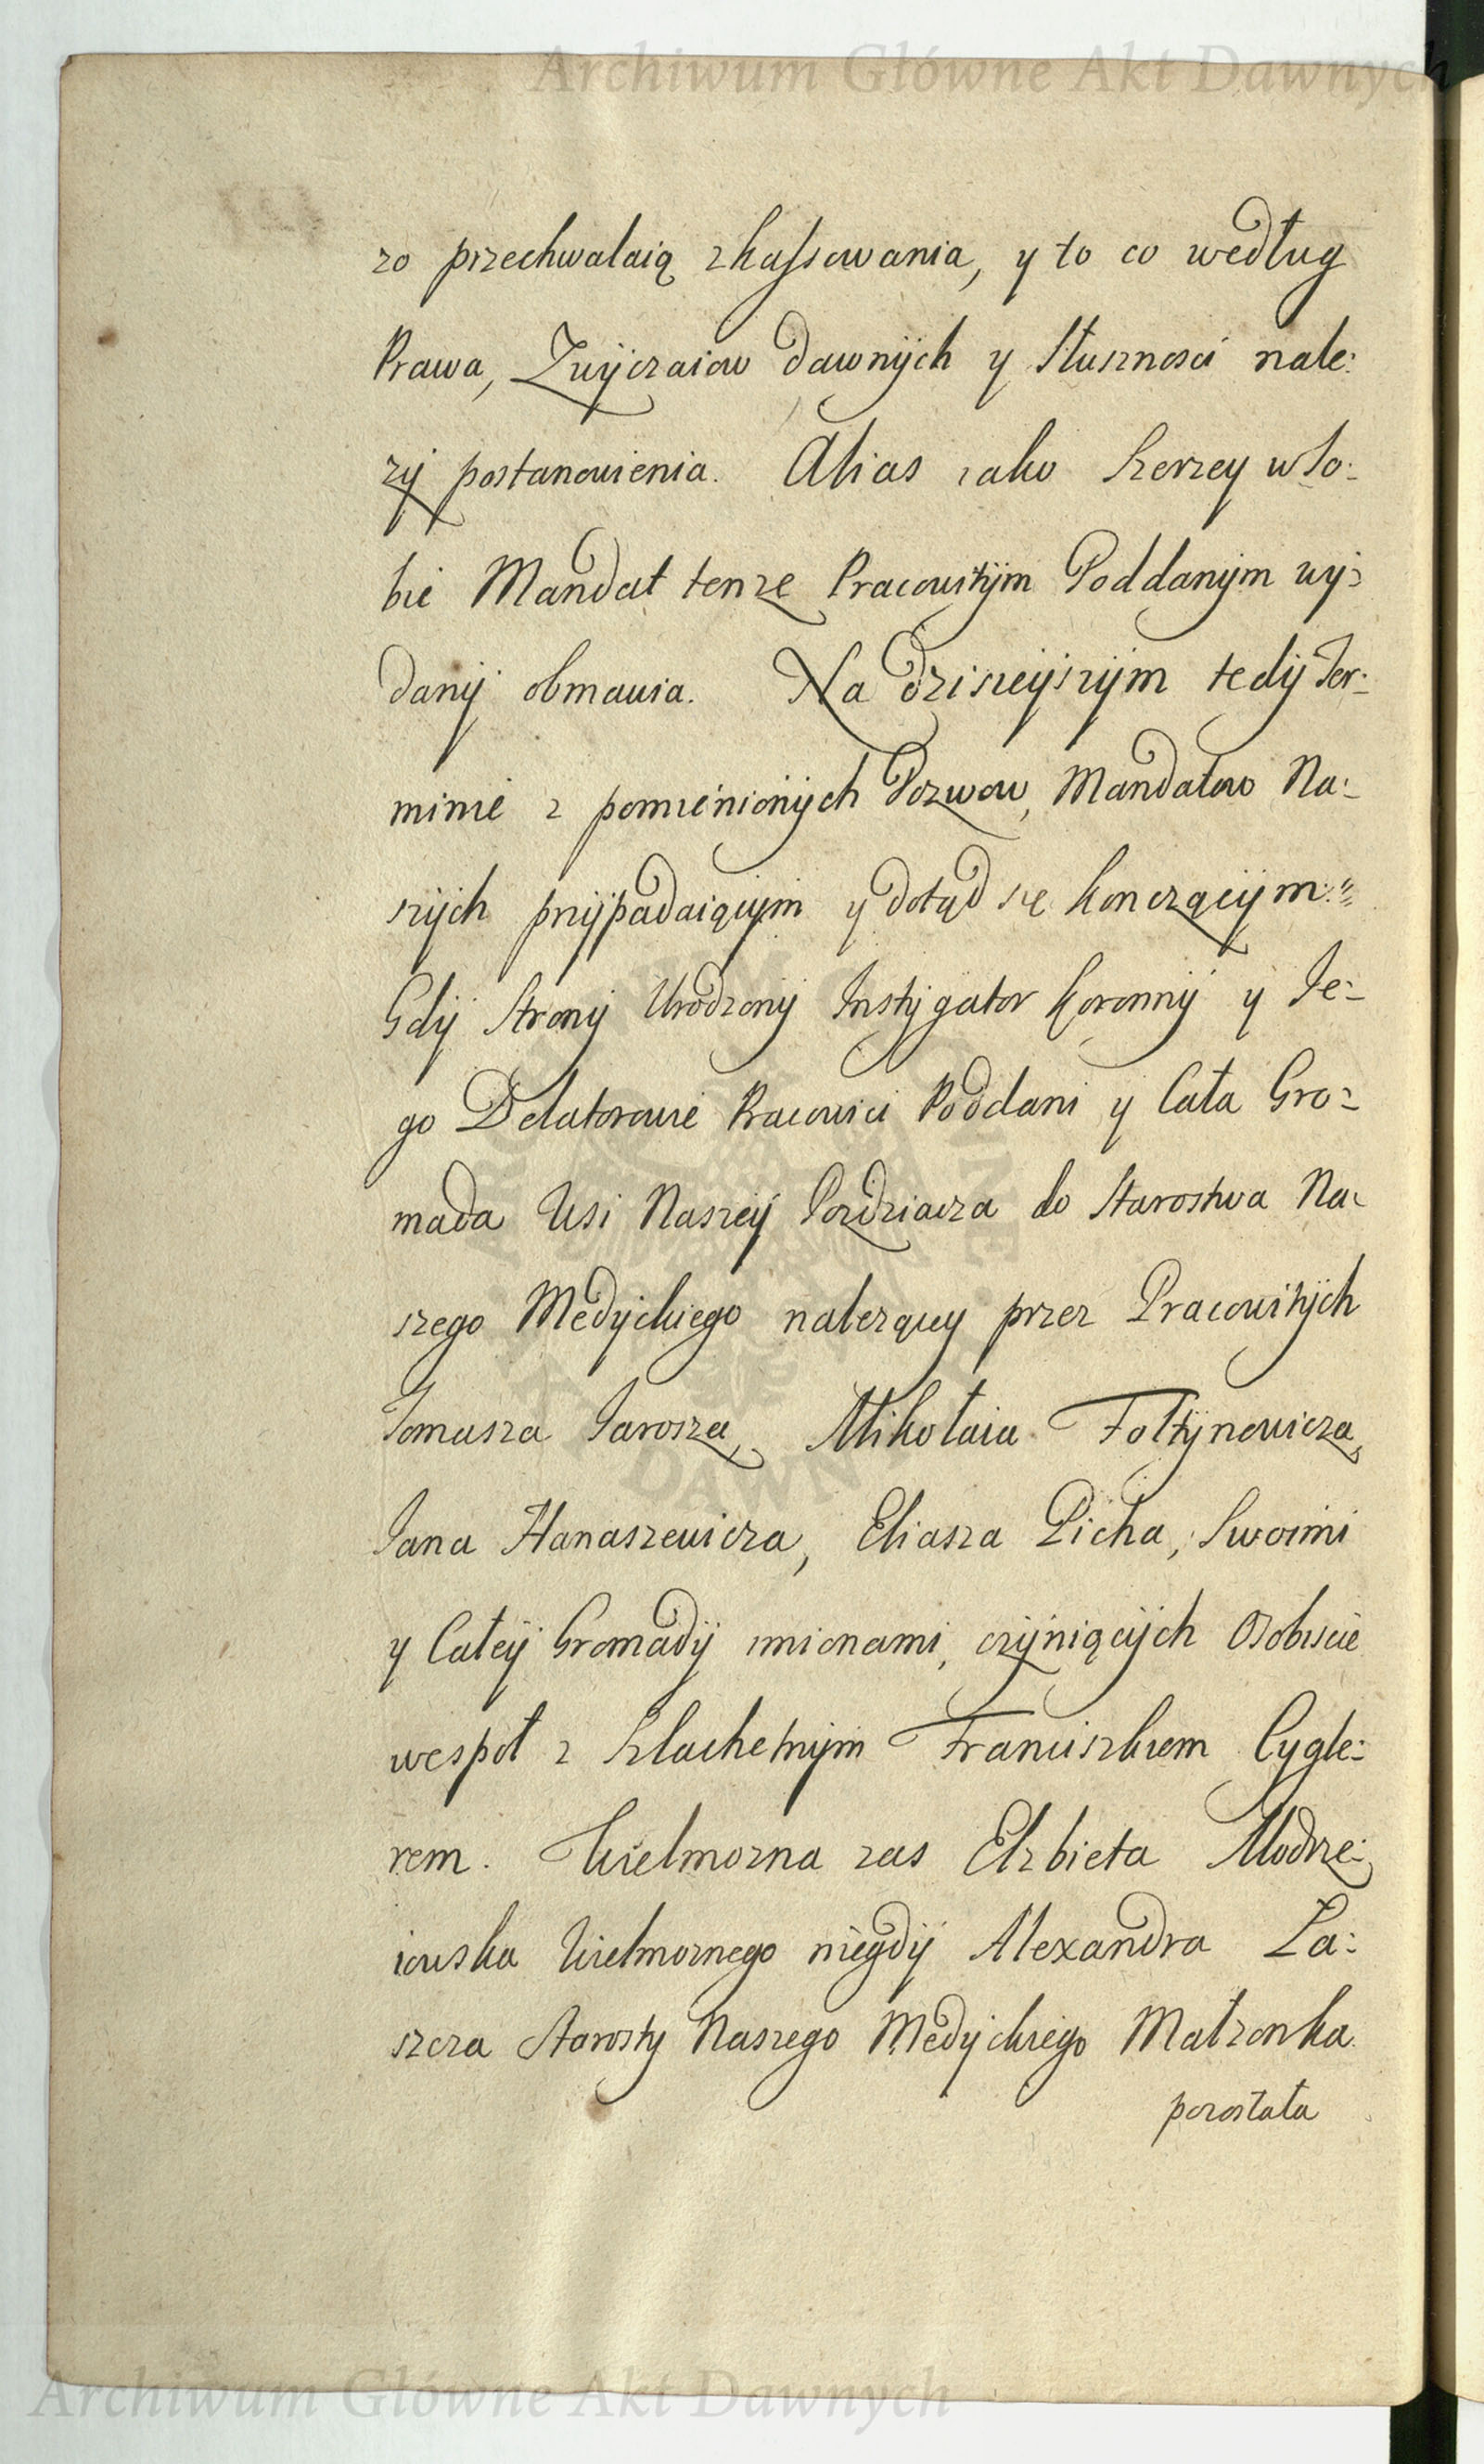 Archiwum Główne Akt Dawnych
zo przechwalaią zkassowania, y to co według
Prawa, Zwÿczaiow dawnÿch y Słusznosci nale:
zÿ postanowienia. Alias iako Szerzey w So:
bie Mandat tenze Pracowitÿm Poddanÿm wÿ:
danÿ obmawia. Na dzisieÿszÿm tedÿ Ter:
minie z pomienionÿch Pozwow, Mandatow Na:
szÿch przÿpadaiącÿm y dotąd się konczącÿm:
Gdÿ Stronÿ Urodzonÿ Instÿgator Koronnÿ y Je:
go Delatorowie Pracowici Poddani y Cała Gro:
mada Wsi Naszeÿ Pozdziacza do Starostwa Na:
szego Medÿckiego nalezącey przez Pracowitÿch
Tomasza Jarosza, Mikołaia Fołtÿnowicza,
Jana Hanaszewicza, Eliasza Picha, Swoimi
y Całeÿ Gromadÿ imionami, czÿniącÿch Osobiscie
wespoł z Szlachetnÿm Franciszkiem Cygle:
rem. Wielmozna zas Elzbieta Modrze:
iowska Wielmoznego niegdÿ Alexandra Ła:
szcza Starosty Naszego Medÿckiego Małzonka
pozostała
Archiwum Główne Akt Dawnych